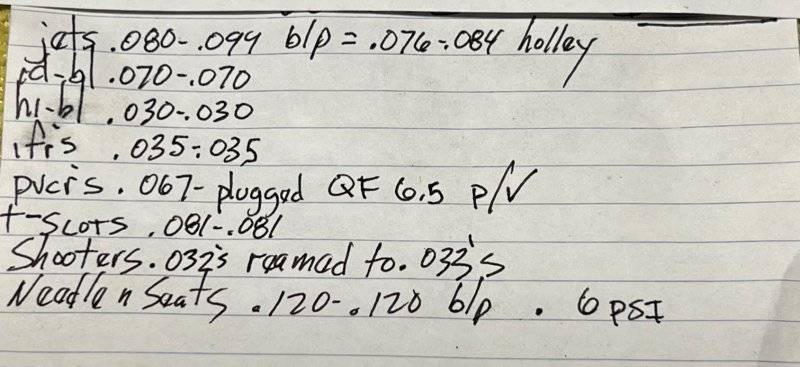 jets .080-.099 b/p = .076-.084 holley
id-bl .070-.070
hi-bl .030-.030
ifr's .035-.035
pvcr's .067-plugged QF 6.5 p/v
t-slots .081-.081
Shooters .032's reamed to .033's
Needle n Seats .120-.120 b/p . 6 PSI